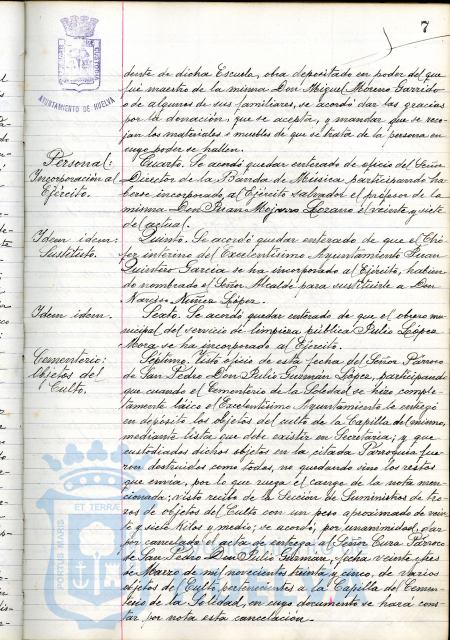 7
AYUNTAMIENTO DE HUELVA
dente de dicha Escuela, obra depositado en poder del que
fué maestro de la misma Don Miguel Moreno Garrido
o de algunos de sus familiares, se acordó dar las gracias
por la donación, que se acepta, y mandar que se reco-
jan los materiales o muebles de que se trata de la persona en
cuyo poder se hallen.
Personal:
Incorporación al
Ejército.
Cuarto. Se acordó quedar enterado de oficio del Señor
Director de la Banda de Música, participando ha-
berse incorporado al Ejército salvador el profesor de la
misma Don Juan Mojarro Lozano el veinte y siete
del actual.
Idem idem:
Sustituto.
Quinto. Se acordó quedar enterado de que el Cho-
fer interino del Excelentísimo Ayuntamiento Juan
Quintero García se ha incorporado al Ejército, habien-
do nombrado el Señor Alcalde para sustituirle a Don
Narciso Núñez López.
Idem idem.
Sexto. Se acordó quedar enterado de que el obrero mu-
nicipal del servicio de limpieza pública Julio López
Mora se ha incorporado al Ejército.
Cementerio:
Objetos del
Culto.
Séptimo. Visto oficio de esta fecha del Señor Párroco
de San Pedro Don Julio Guzmán López, participando
que cuando el Cementerio de la Soledad se hizo comple-
tamente láico el Excelentísimo Ayuntamiento le entregó
en depósito los objetos del culto de la Capilla del mismo,
mediante lista que debe existir en Secretaría; y que
custodiados dichos objetos en la citada Parroquia fue-
ron destruidos como todos, no quedando sino los restos
que envía, por lo que ruega el cange de la nota men-
cionada; visto recibo de la Sección de Suministros de
de objetos del Culto con un peso aproximado de vein-
te y siete kilos y medio; se acordó, por unanimidad, dar
por cancelada el acta de entrega al Señor Cura Párroco
de San Pedro Don Julio Guzmán, fecha veinte y tres
de Marzo de mil novecientos treinta y cinco, de varios
objetos del Culto pertenecientes a la Capilla del Cemen-
terio de la Soledad, en cuyo documento se hará cons-
tar por nota esta cancelación.
PORTUS MARIS ET TERRAE